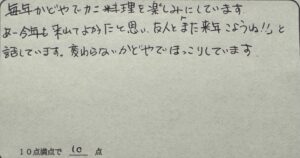 毎年かどやでカニ料理を楽しみにしています
あー今年も来れてよかったと思い、友人とまた来年こようね!!と
話しています。変わらないかどやでほっこりしています。
10点満点で 10 点